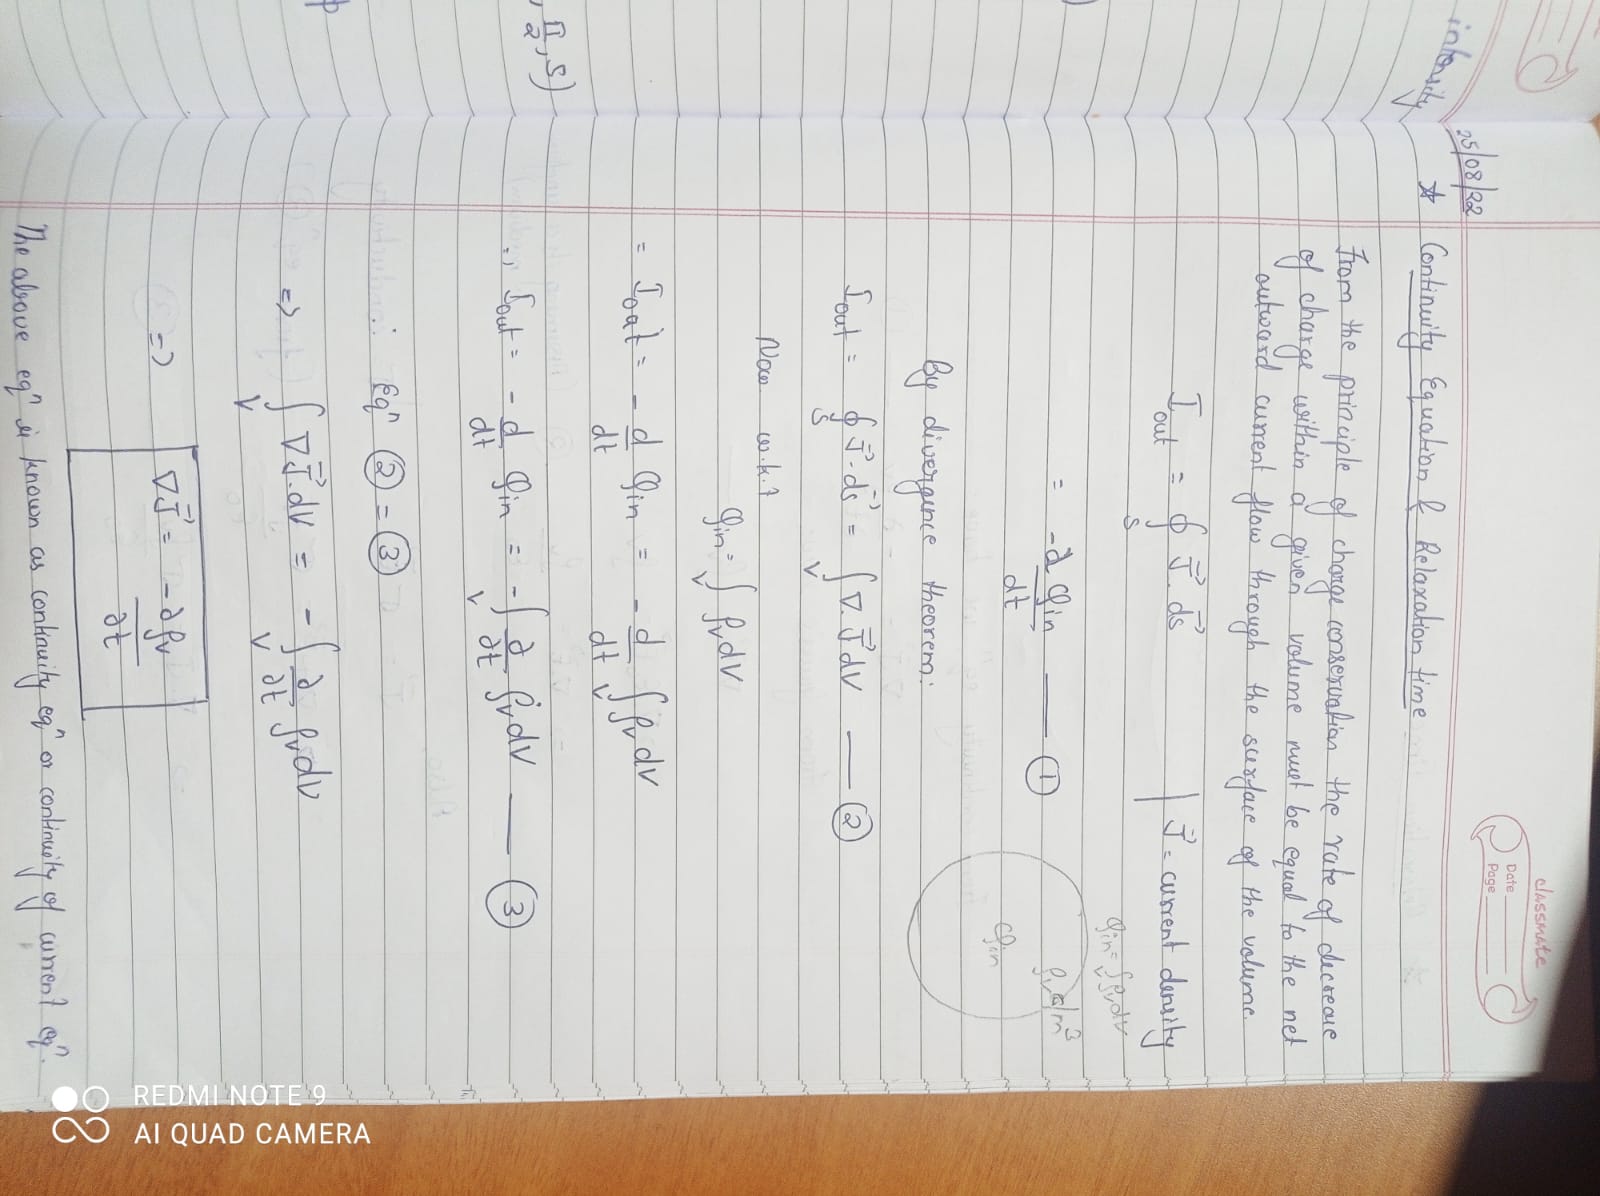 intensity
π/2, S)
classmate
Date
Page
25/08/22
☆ Continuity Equation & Relaxation time
From the principle of charge conservation the rate of decrease
of charge within a given volume must be equal to the net
outward current flow through the surface of the volume.
I_out = ∮_S J⃗ · ds⃗ | J⃗ = current density
Q_in = ∫_V ρ_v dv
= -d Q_in / dt —— ①
ρ_v c/m³
Q_in
By divergence theorem:
I_out = ∮_S J⃗ · ds⃗ = ∫_V ∇ · J⃗ dv —— ②
Now w.k.t
Q_in = ∫_V ρ_v dv
= I_out = - d/dt Q_in = - d/dt ∫_V ρ_v dv
=, I_out = - d/dt Q_in = - ∫_V ∂/∂t ρ_v dv —— ③
Eqⁿ ② = ③
=> ∫_V ∇J⃗ . dv = - ∫_V ∂/∂t ρ_v dv
=> ∇J⃗ = -∂ρ_v / ∂t
The above eqⁿ is known as continuity eqⁿ or continuity of current eqⁿ.
REDMI NOTE 9
AI QUAD CAMERA